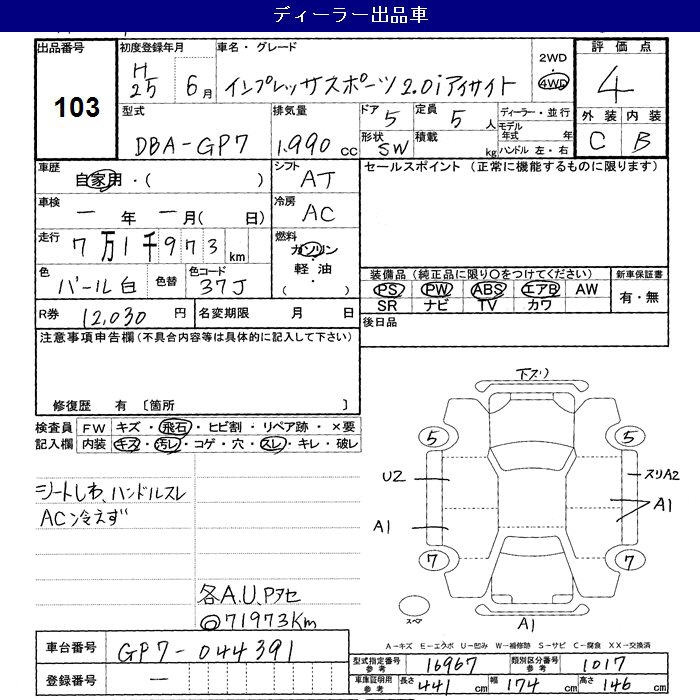 ディーラー出品車
出品番号 初度登録年月 車名・グレード 評価点
103
H25 6月 インプレッサスポーツ2.0iアイサイト 2WD 4WD 4
型式 排気量 ドア 5 定員 5人 ディーラー・並行 外装 内装
DBA-GP7 1,990cc 形状 SW 積載 kg モデル年式 年 ハンドル 左・右 C B
車歴 自家用・( ) シフト AT セールスポイント (正常に機能するものに限ります)
車検 ー年ー月( 日) 冷房 AC
走行 7万1千973km 燃料 ガソリン・軽油・( )
色 パール白 色替 色コード 37J
装備品(純正品に限り○をつけてください) 新車保証書
PS PW ABS エアB AW 有・無
SR ナビ TV カワ
R券 12,030円 名変期限 月 日 後日品
注意事項申告欄(不具合内容等は具体的に記入して下さい)
修復歴 有 〔箇所 〕
検査員 FW キズ・飛石・ヒビ割・リペア跡・×要
記入欄 内装 キズ・汚レ・コゲ・穴・スレ・キレ・破レ
シートしわ、ハンドルスレ
ACン冷えず
各A.U.Pヌセ
◎71973Km
下スリ
5 5
U2 スリA2
A1 A1
7 7
スペア
A1
A-キズ E-エクボ U-凹み W-補修跡 S-サビ C-腐食 XX-交換済
車台番号 GP7-044391
登録番号 ー
型式指定番号 参考 16967 類別区分番号 参考 1017
車庫証明用 参考 長さ 441cm 幅 174cm 高さ 146cm